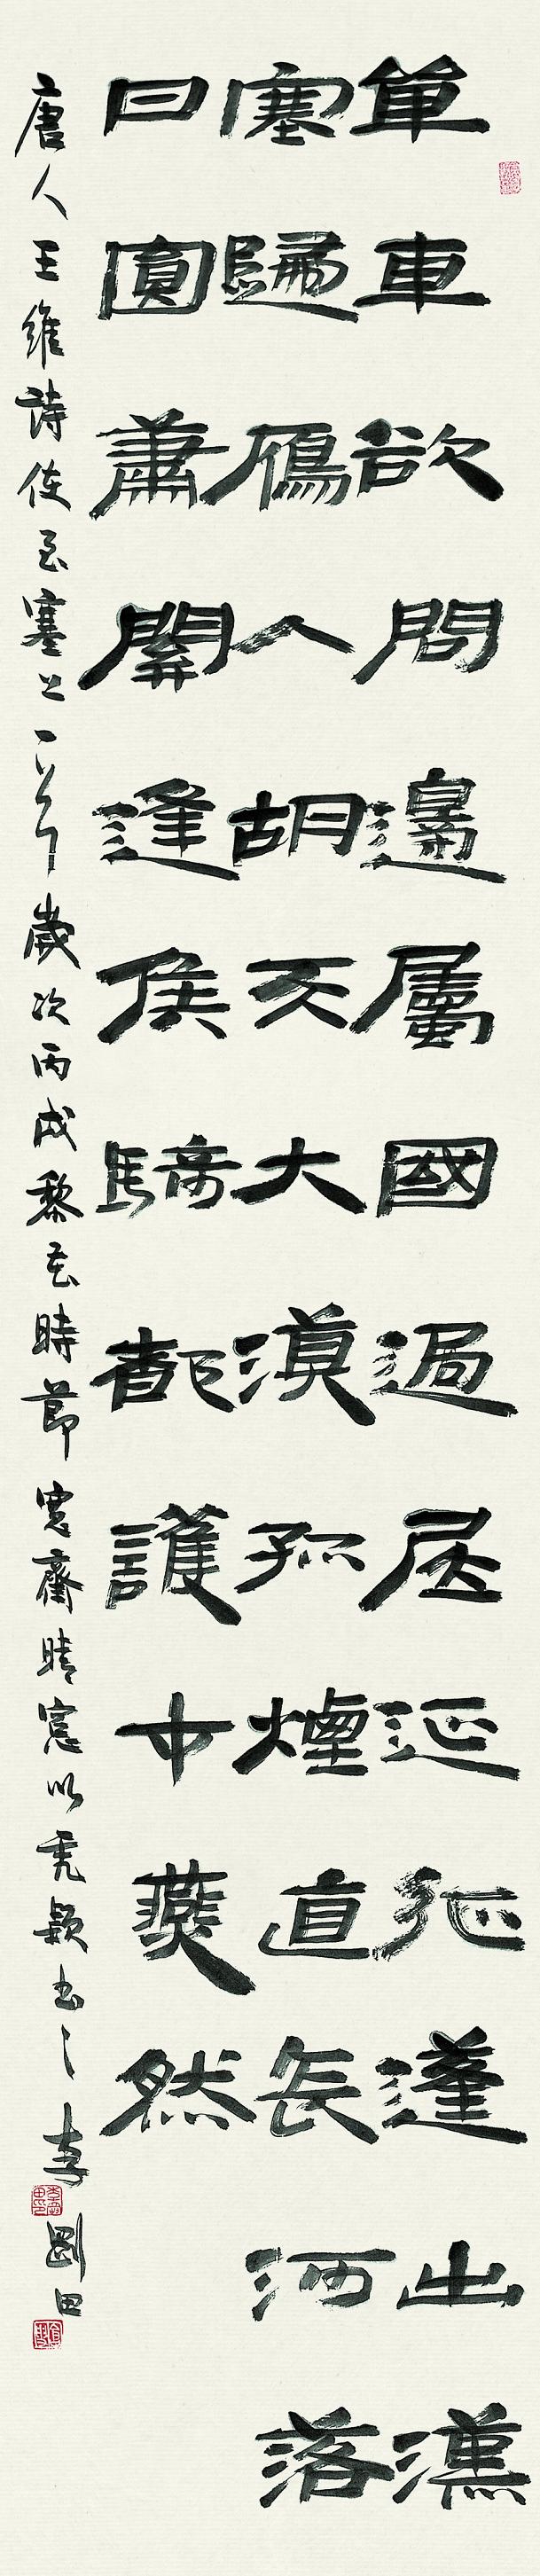 單車欲問邊屬國過居延征蓬出漢
塞歸鴈人胡天大漠孤煙直長河落
日圓蕭關逢侯騎都護在燕然
唐人王維詩使至塞上一首歲次丙戌黎花時節寬齋晴窗以禿穎書之李剛田